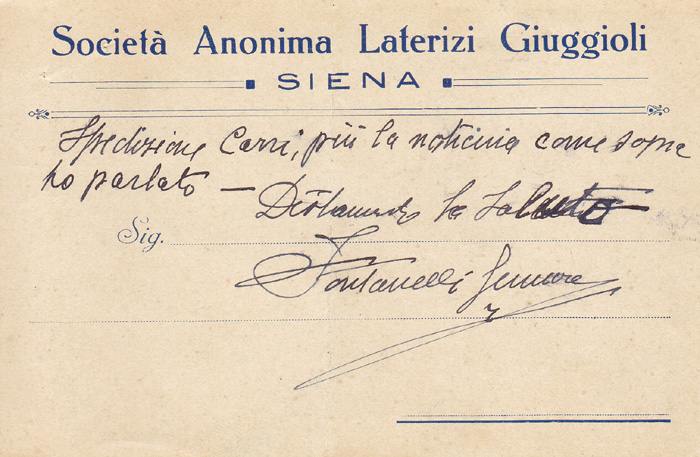 Società Anonima Laterizi Giuggioli
SIENA
Spedizione Carri, più la noticina come sopra
ho parlato — Distamente la Saluto
Sig.
Fontanelli